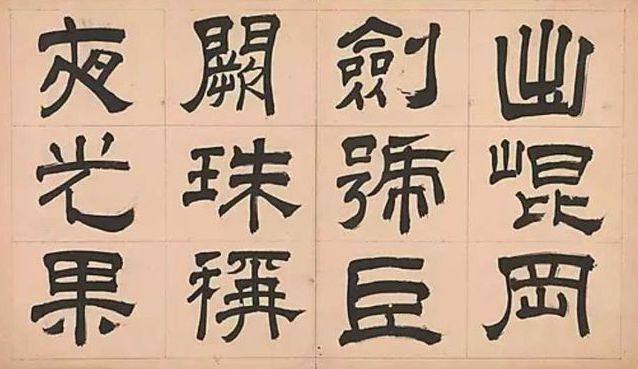 出崐岡
劍號臣
闕珠稱
夜光果